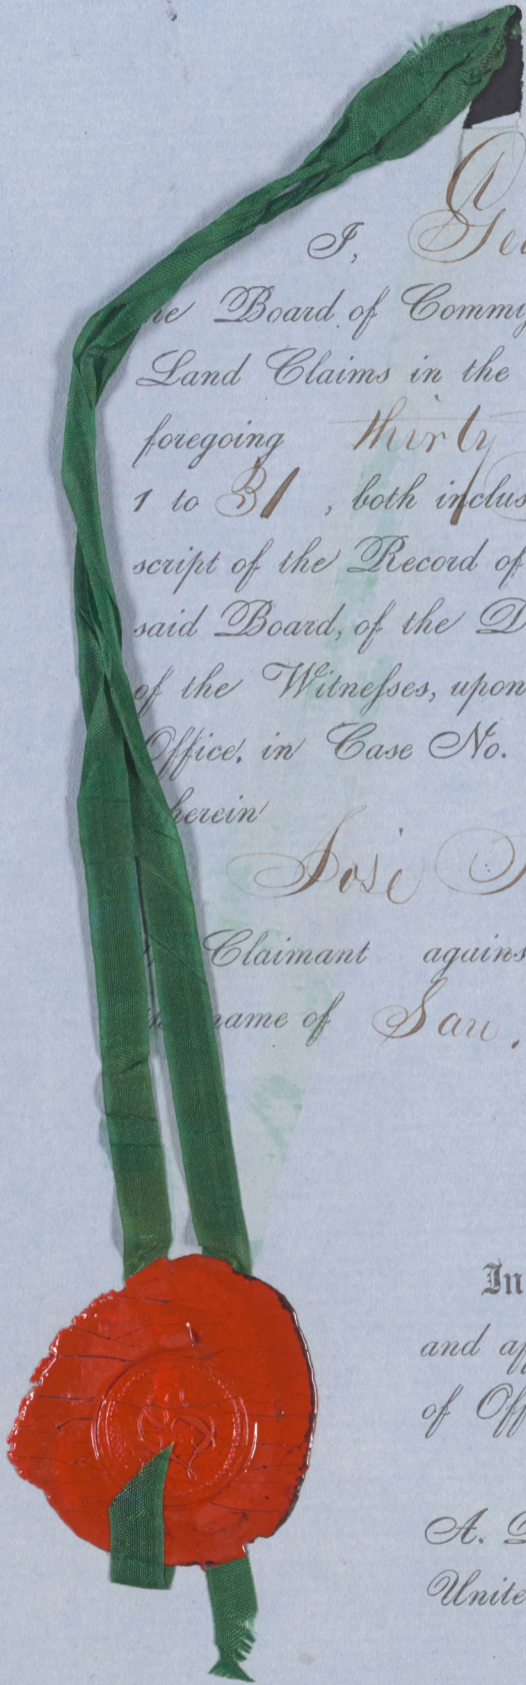 I, Geo
he Board of Commis
Land Claims in the
foregoing thirty
1 to 31, both inclus
script of the Record of
said Board, of the D
of the Witnesses, upon
Office, in Case No.
herein
José
Claimant agains
name of San
In
and af
of Off
A. D
Unite